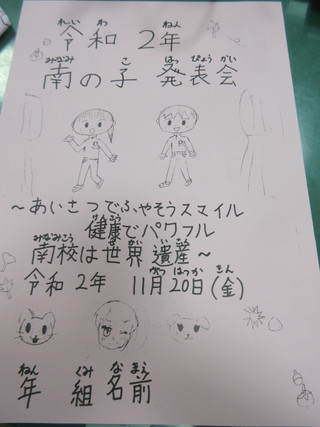 れい わ ねん
令和 2年
みなみ こ はっ ぴょう かい
南の子 発表会
～あいさつでふやそうスマイル
けんこう
健康でパワフル
みなみこう せ かい い さん
南校は世界遺産～
れい わ ねん がつ はつか きん
令和 2年 11月20日(金)
ねん くみ な まえ
年 組 名前